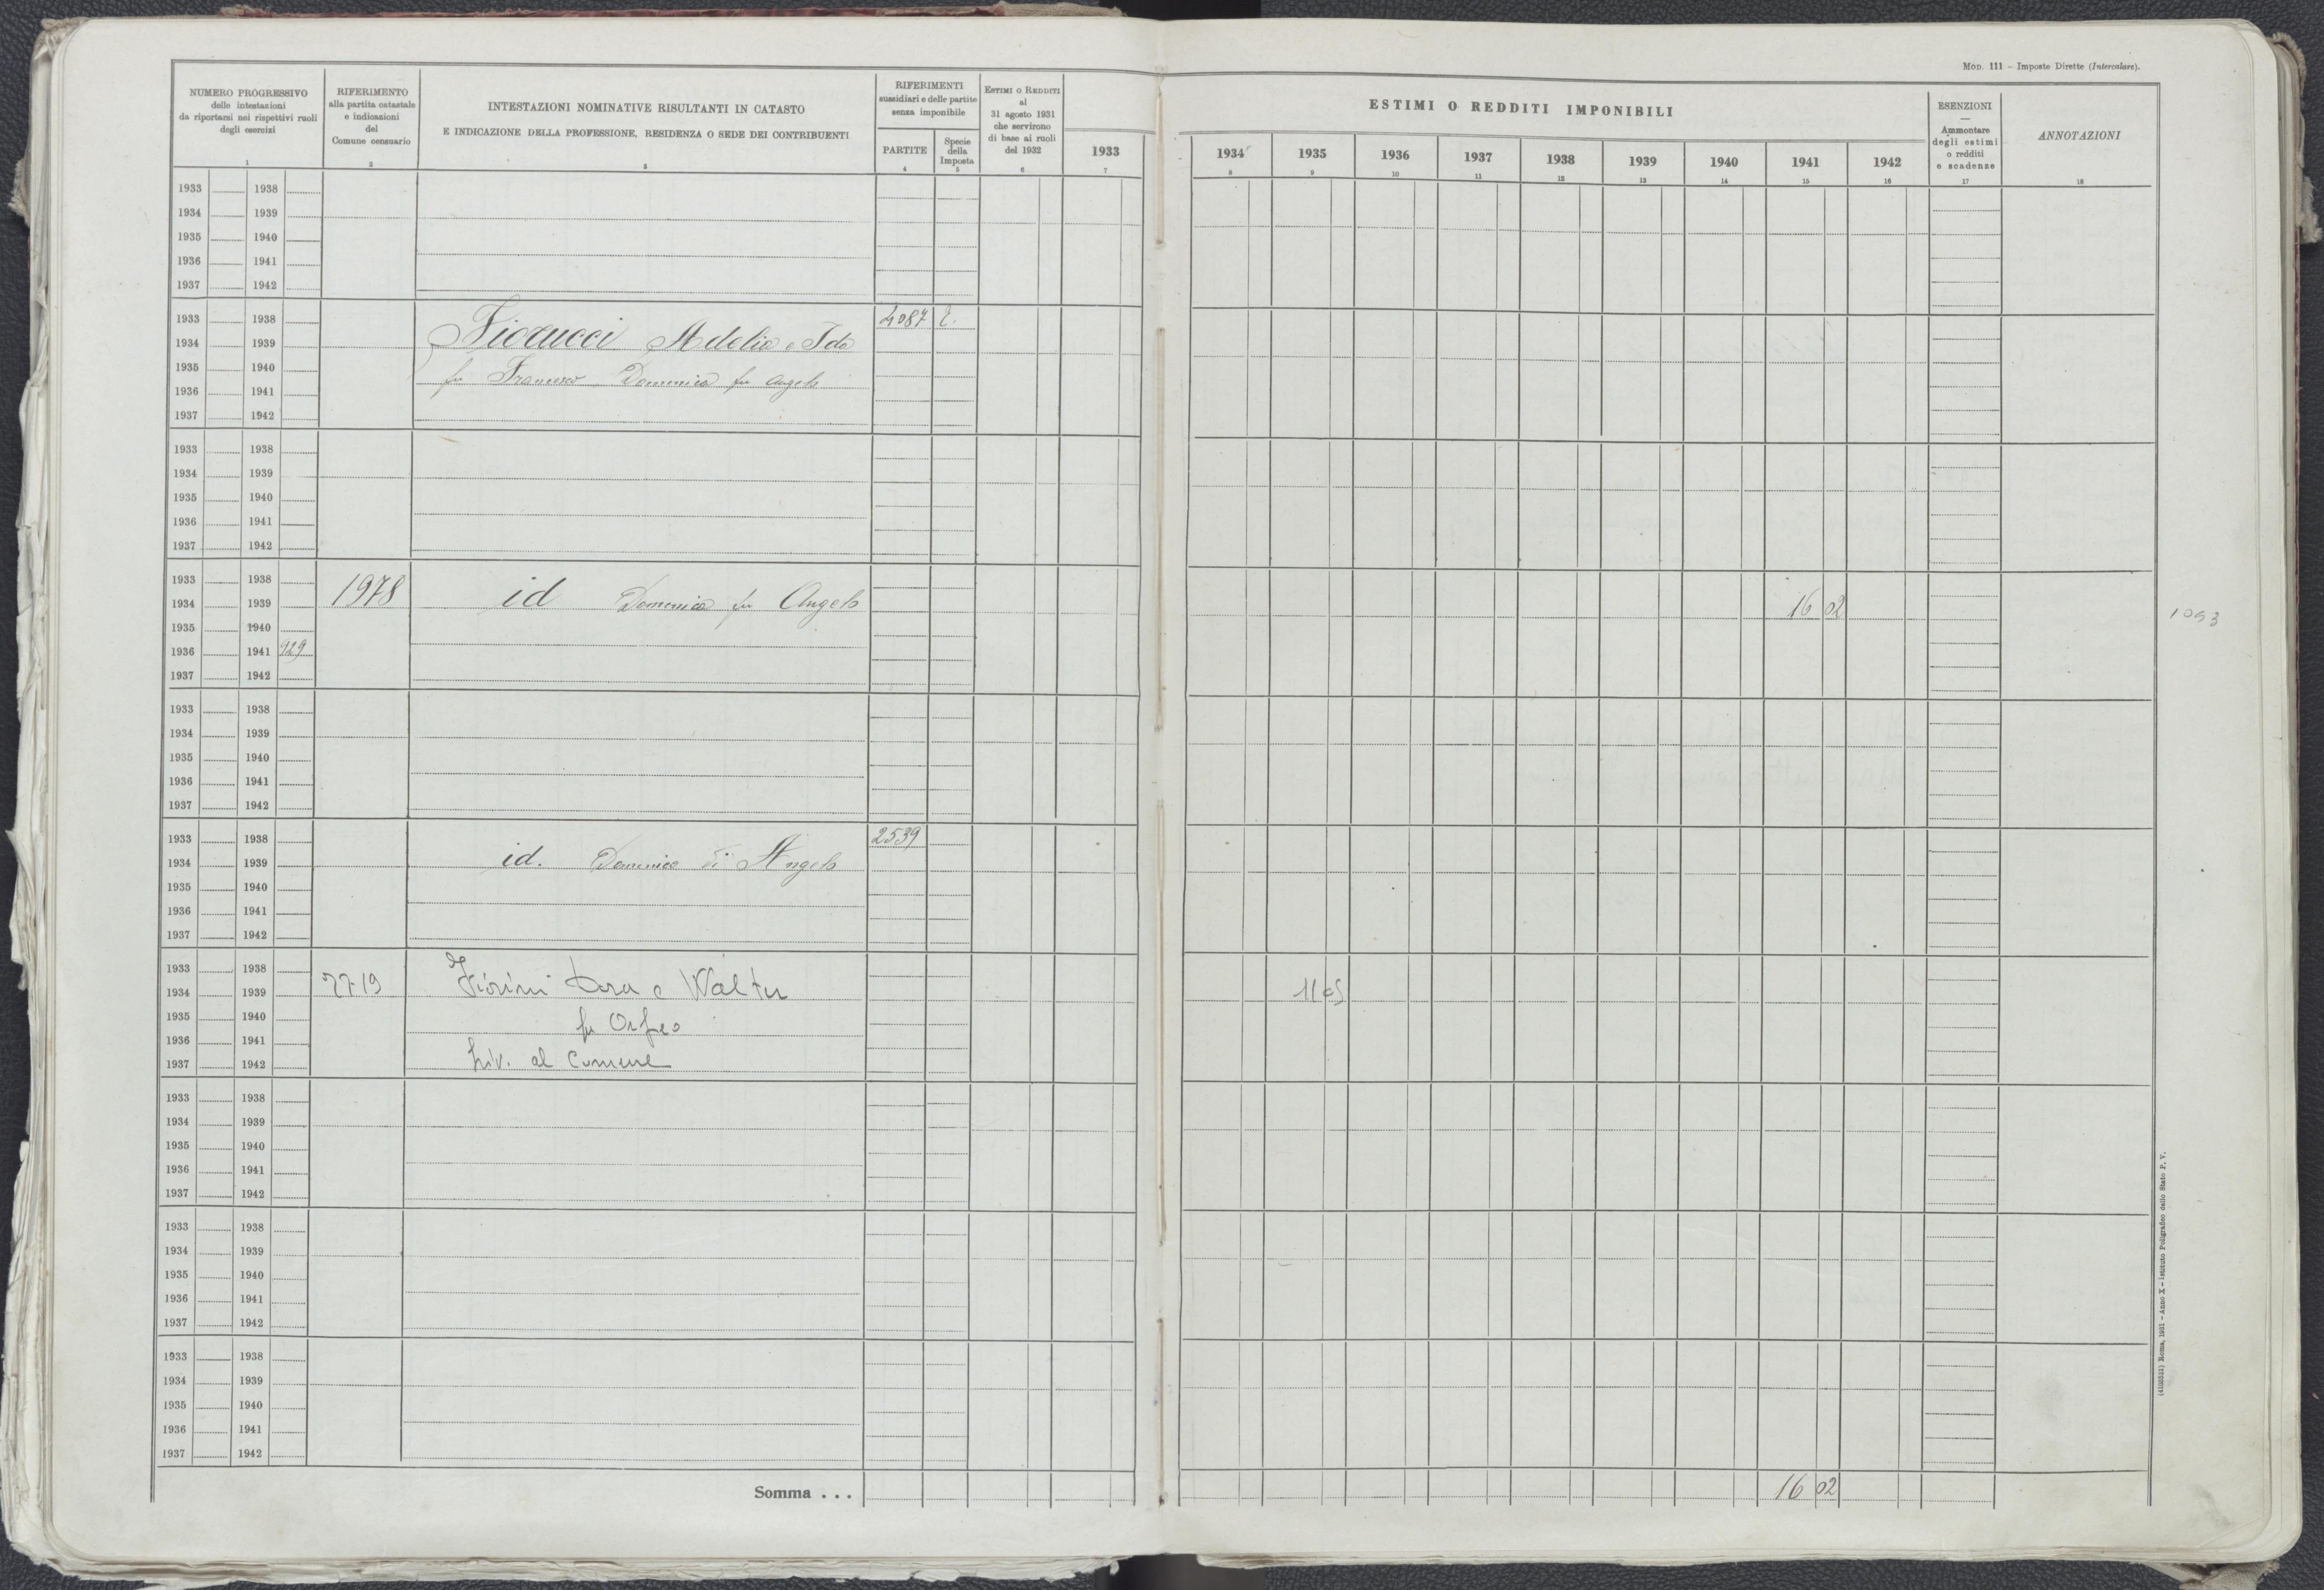 MOD. 111 – Imposte Dirette (Intercalare).
NUMERO PROGRESSIVO
delle intestazioni
da riportarsi nei rispettivi ruoli
degli esercizi
1
RIFERIMENTO
alla partita catastale
e indicazioni
del
Comune censuario
2
INTESTAZIONI NOMINATIVE RISULTANTI IN CATASTO
E INDICAZIONE DELLA PROFESSIONE, RESIDENZA O SEDE DEI CONTRIBUENTI
3
RIFERIMENTI
sussidiari e delle partite
senza imponibile
PARTITE
4
Specie
della
Imposta
5
ESTIMI O REDDITI
al
31 agosto 1931
che servirono
di base ai ruoli
del 1932
6
ESTIMI O REDDITI IMPONIBILI
1933 1934 1935 1936 1937 1938 1939 1940 1941 1942
7 8 9 10 11 12 13 14 15 16
ESENZIONI
—
Ammontare
degli estimi
o redditi
e scadenze
17
ANNOTAZIONI
18
1933 1938
1934 1939
1935 1940
1936 1941
1937 1942
1933 1938 4087
1934 1939 Fiorucci Adelia e Ida
1935 1940 fu Francesco Domenica fu Angelo
1936 1941
1937 1942
1933 1938
1934 1939
1935 1940
1936 1941
1937 1942
1933 1938
1934 1939 1978 id Domenica fu Angelo 16 02
1935 1940 1093
1936 1941 929
1937 1942
1933 1938
1934 1939
1935 1940
1936 1941
1937 1942
1933 1938 2539
1934 1939 id. Domenico di Angelo
1935 1940
1936 1941
1937 1942
1933 1938
1934 1939 7719 Fiorini Dora e Walter 11 05
1935 1940 fu Orfeo
1936 1941
1937 1942 Liv. al Comune
1933 1938
1934 1939
1935 1940
1936 1941
1937 1942
1933 1938
1934 1939
1935 1940
1936 1941
1937 1942
1933 1938
1934 1939
1935 1940
1936 1941
1937 1942
Somma . . . 16 02
(4100531) Roma, 1931 – Anno X – Istituto Poligrafico dello Stato P. V.